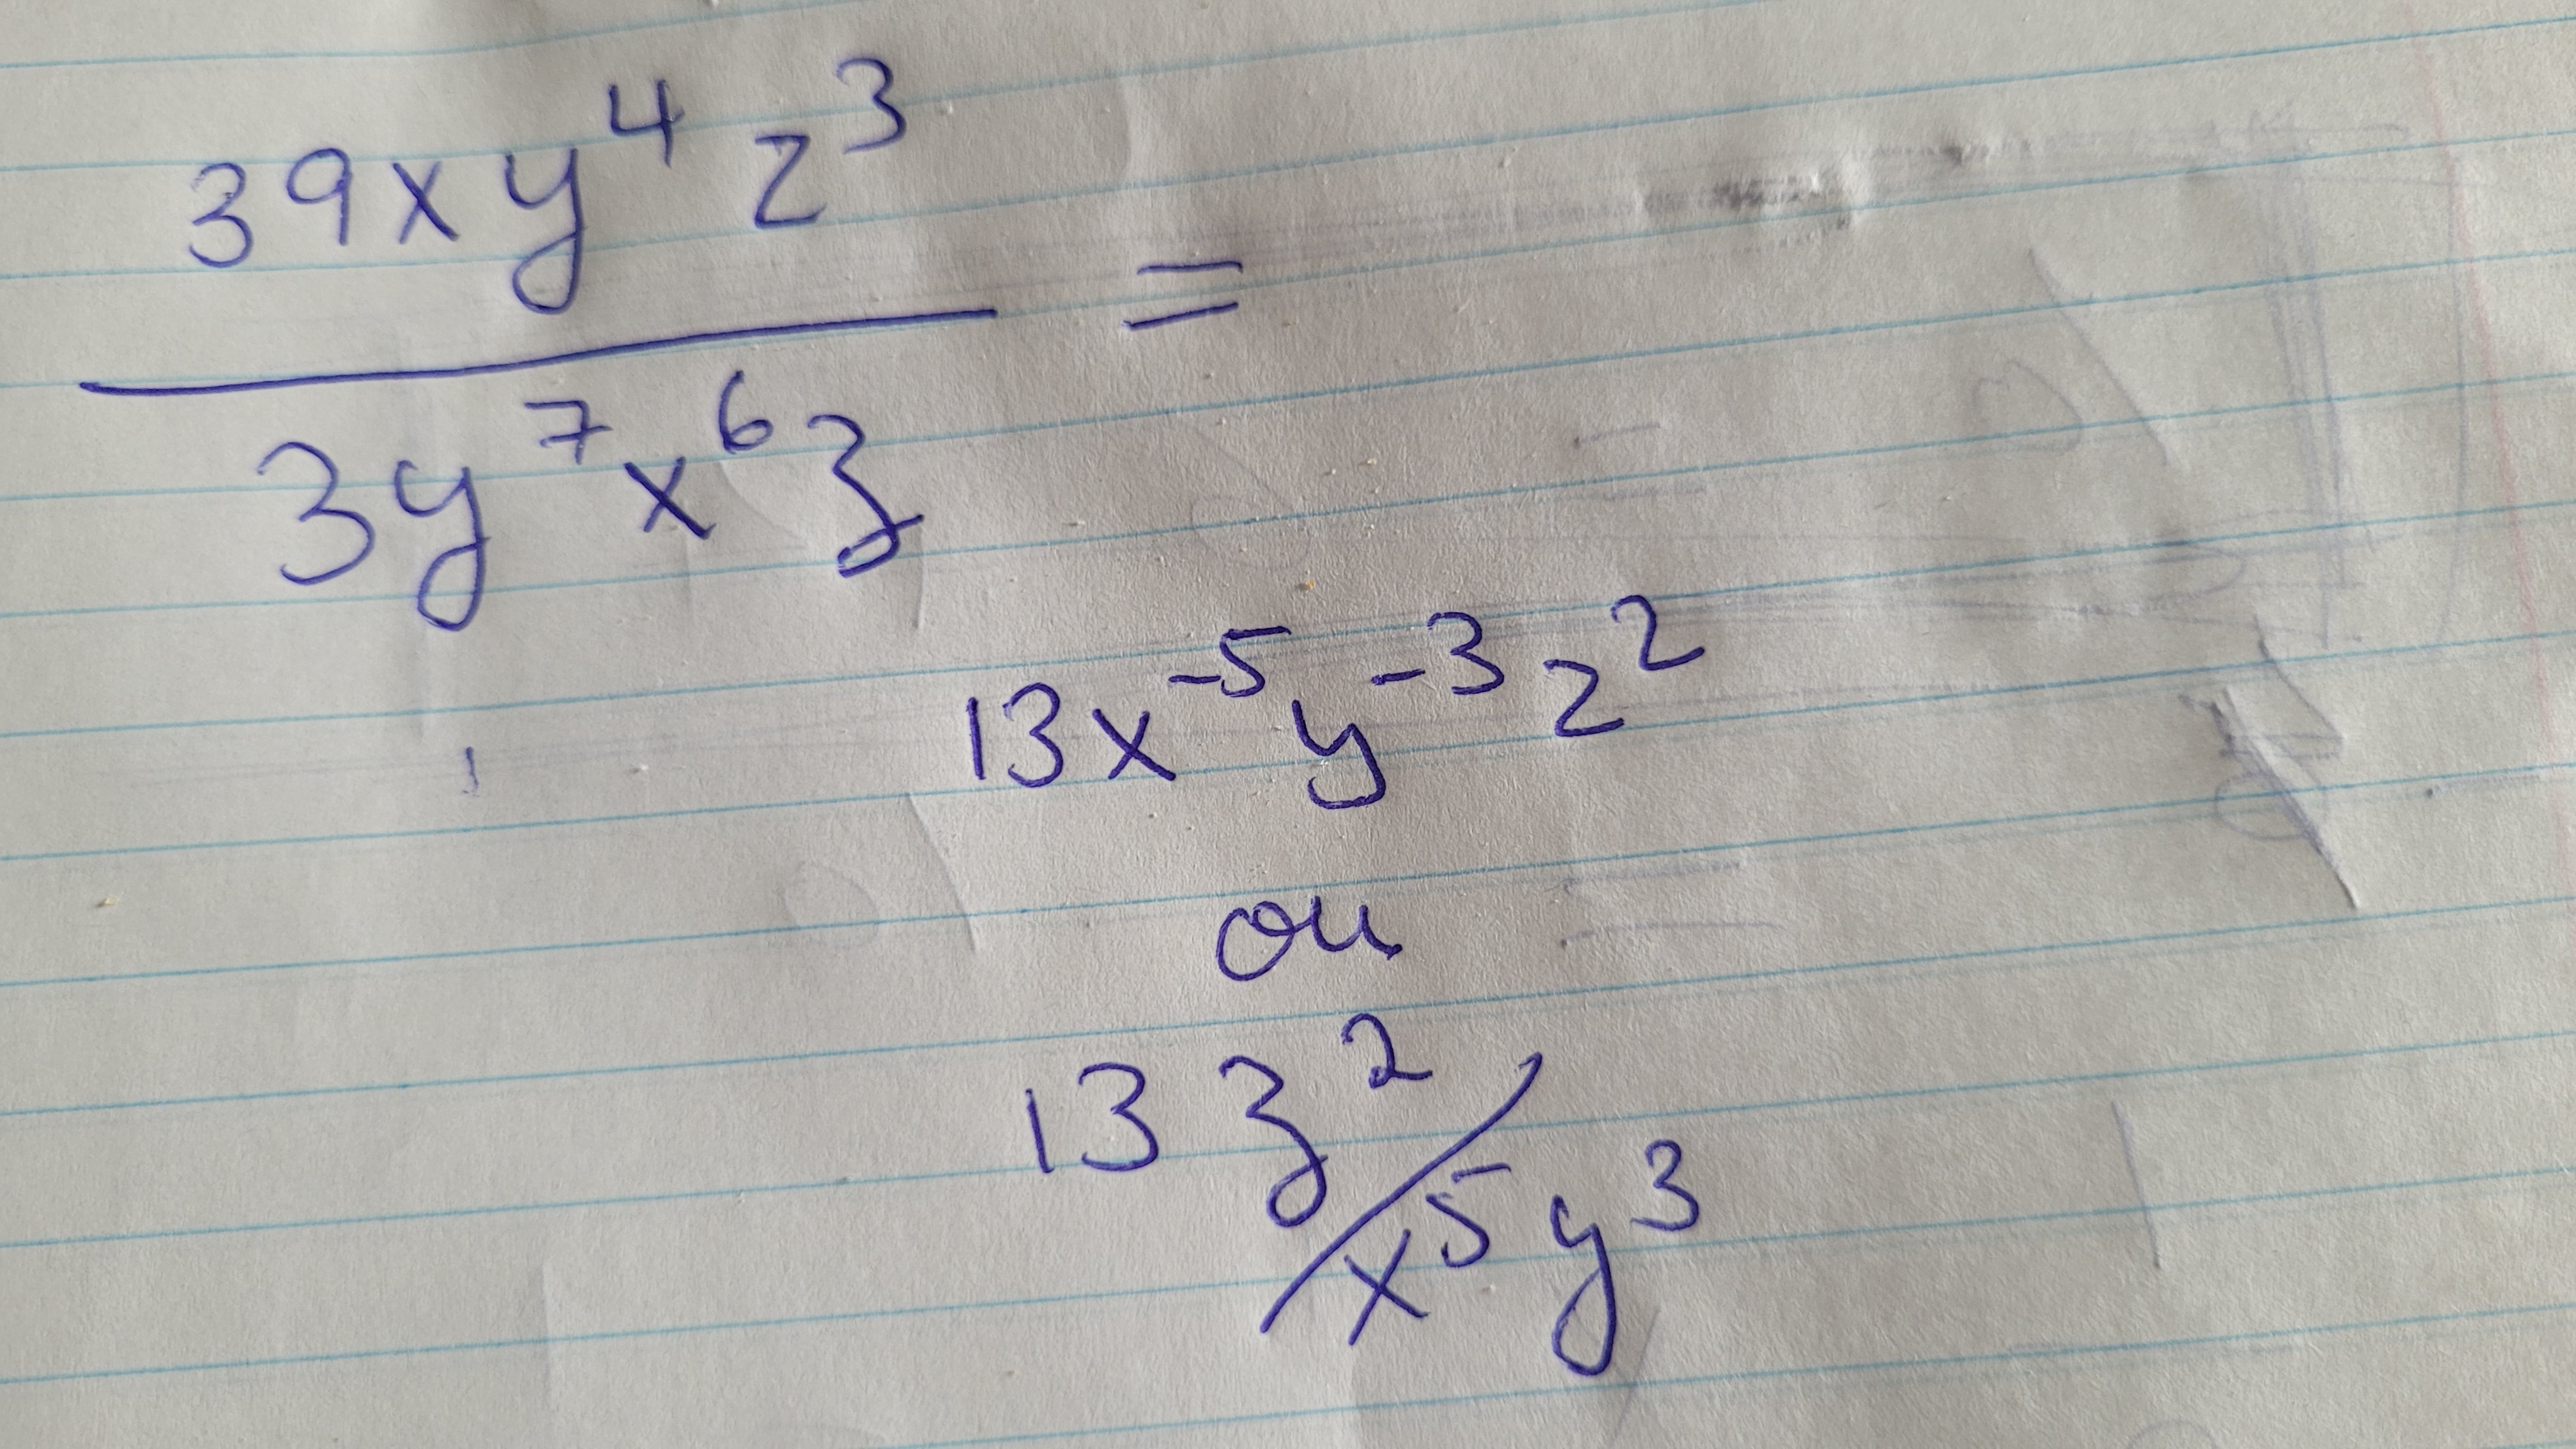 39xy⁴z³
——— =
3y⁷x⁶z
13x⁻⁵y⁻³z²
ou
13z²/x⁵y³